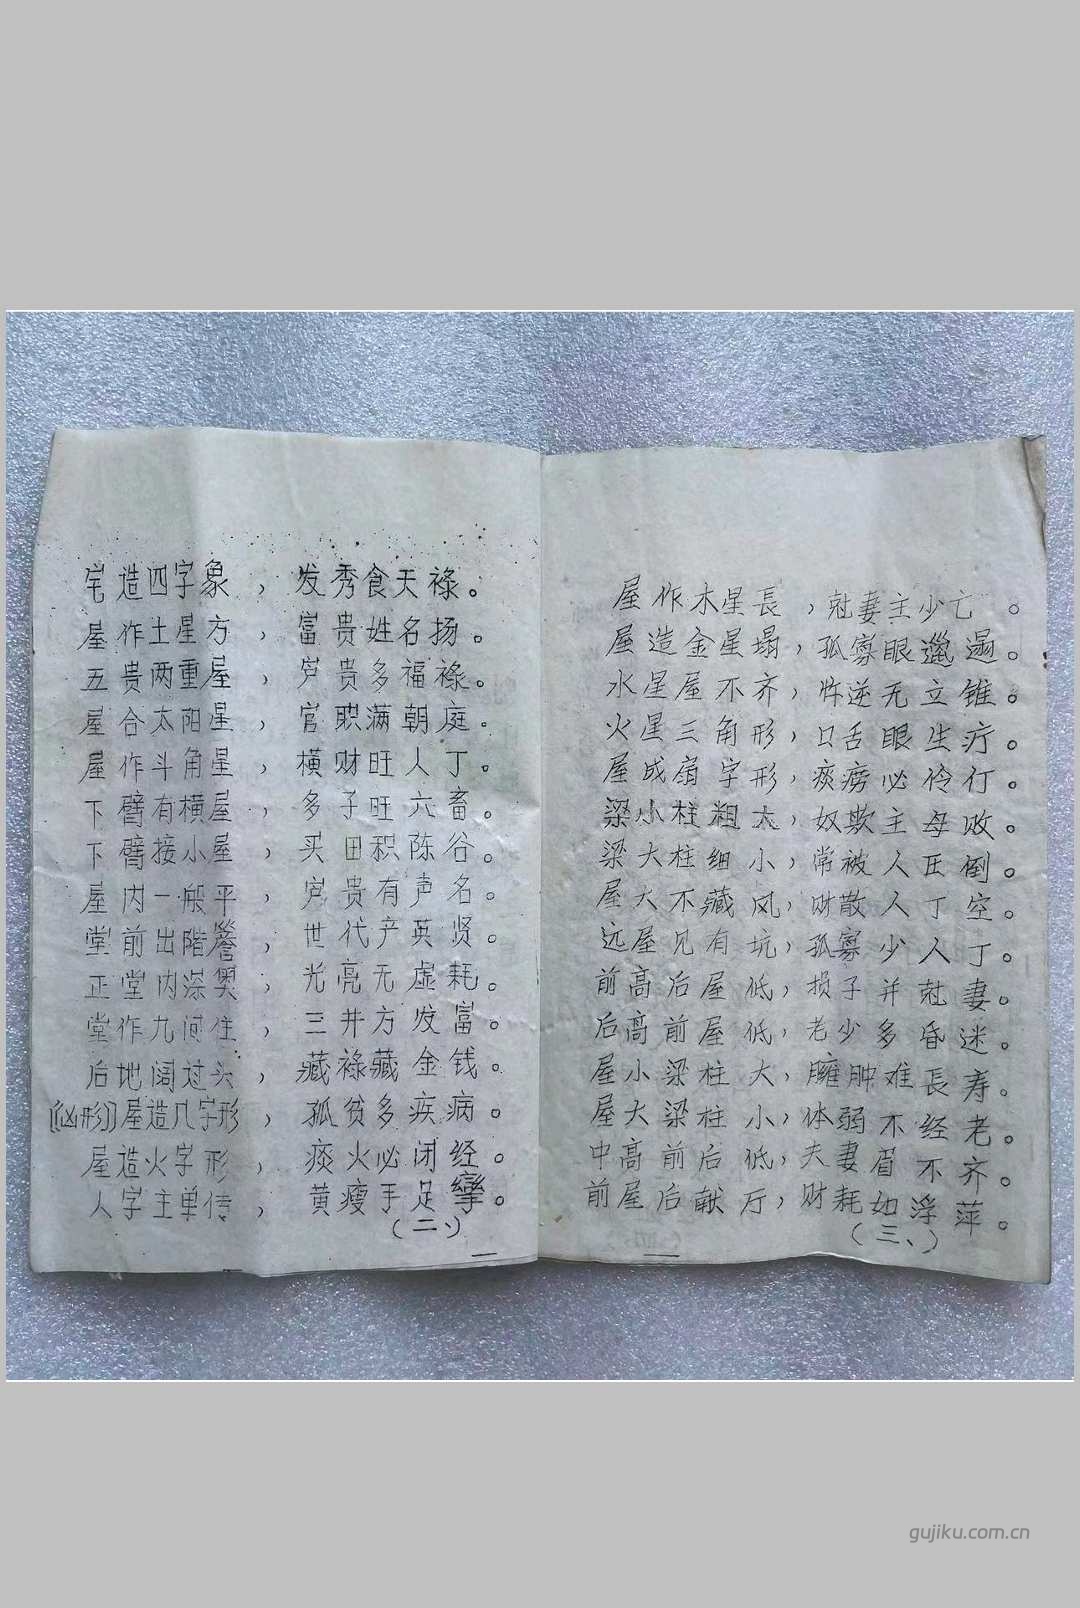 宅造四字象，发秀食天禄。
屋作土星方，富贵姓名扬。
五贵两重屋，岁贵多福禄。
屋合太阳星，官职满朝庭。
屋作斗角星，横财旺人丁。
下臂有横屋，多子旺六畜。
下臂接小屋，买田积陈谷。
屋内一般平，贵有声名。
堂前出階簷，世代产英贤。
正堂内深奥，光亮无虚耗。
堂作九间住，三井方发富。
后地阔过头，藏禄藏金钱。
(凶形)屋造几字形，孤贫多疾病。
屋造火字形，痰火必闭经。
人字主单传，黄瘦手足孿。
(二、)
屋作木星長，尅妻主少亡。
屋造金星塌，孤寡眼邋遢。
水星屋不齐，忤逆无立锥。
火星三角形，口舌眼生疗。
屋成扇字形，痰痨必伶仃。
梁小柱粗大，奴欺主母败。
梁大柱细小，常被人压倒。
屋大不藏风，财散人丁空。
远屋见有坑，孤寡少人丁。
前高后屋低，损子并尅妻。
后高前屋低，老少多昏迷。
屋小梁柱大，臃肿难長寿。
屋大梁柱小，体弱不经老。
中高前后低，夫妻眉不齐。
前屋后献厅，财耗如浮萍。
(三、)
gujiku.com.cn